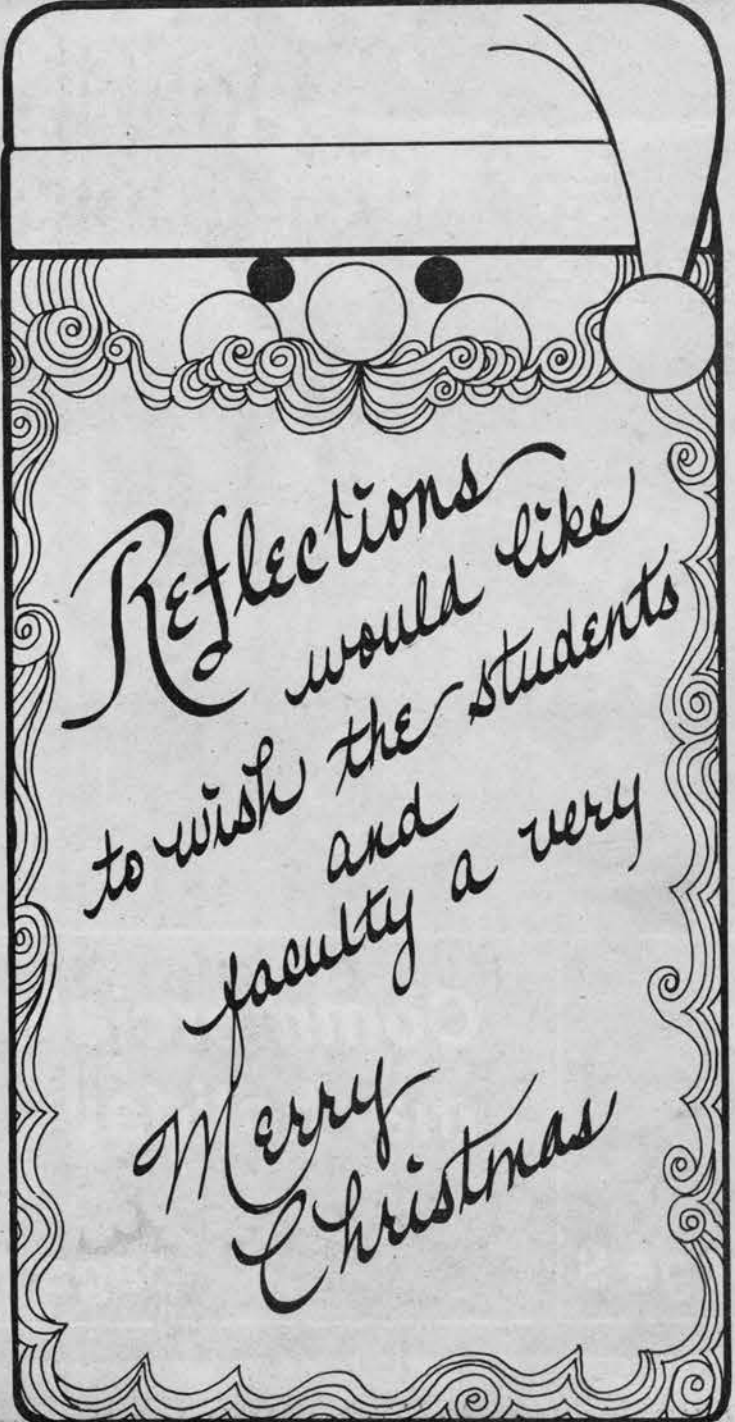 Reflections
would like
to wish the students
and
faculty a very
Merry
Christmas